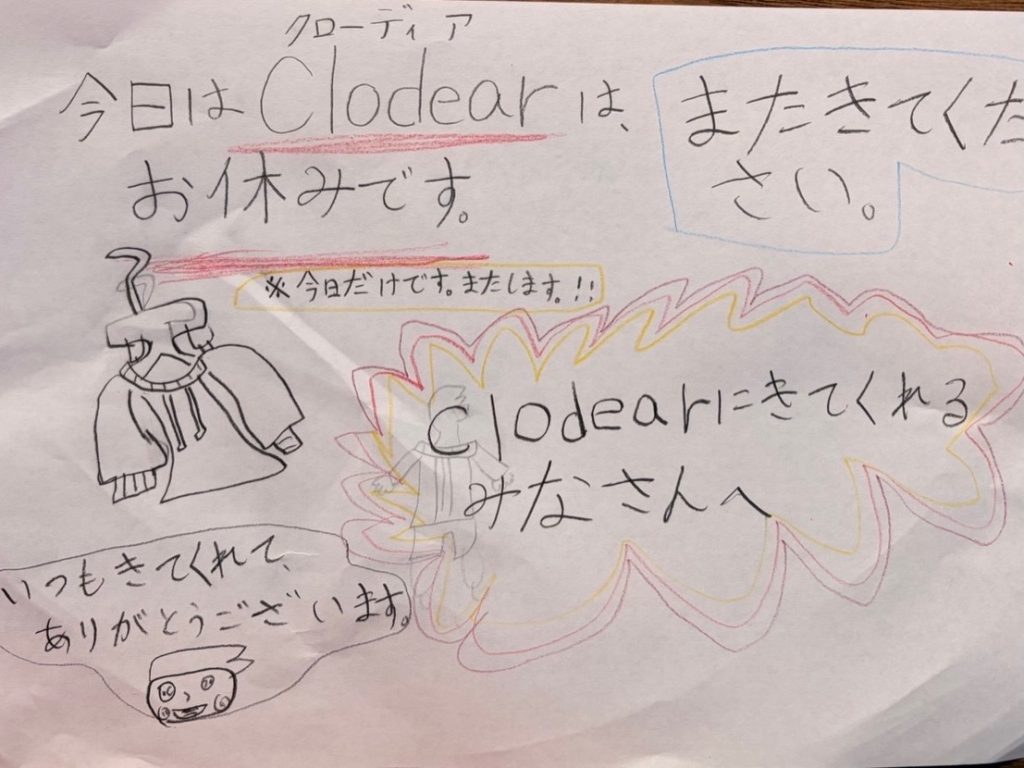 クローディア
今日はClodearは、
お休みです。
またきてくだ
さい。
※今日だけです。またします。!!
Clodearにきてくれる
みなさんへ
いつもきてくれて、
ありがとうございます。